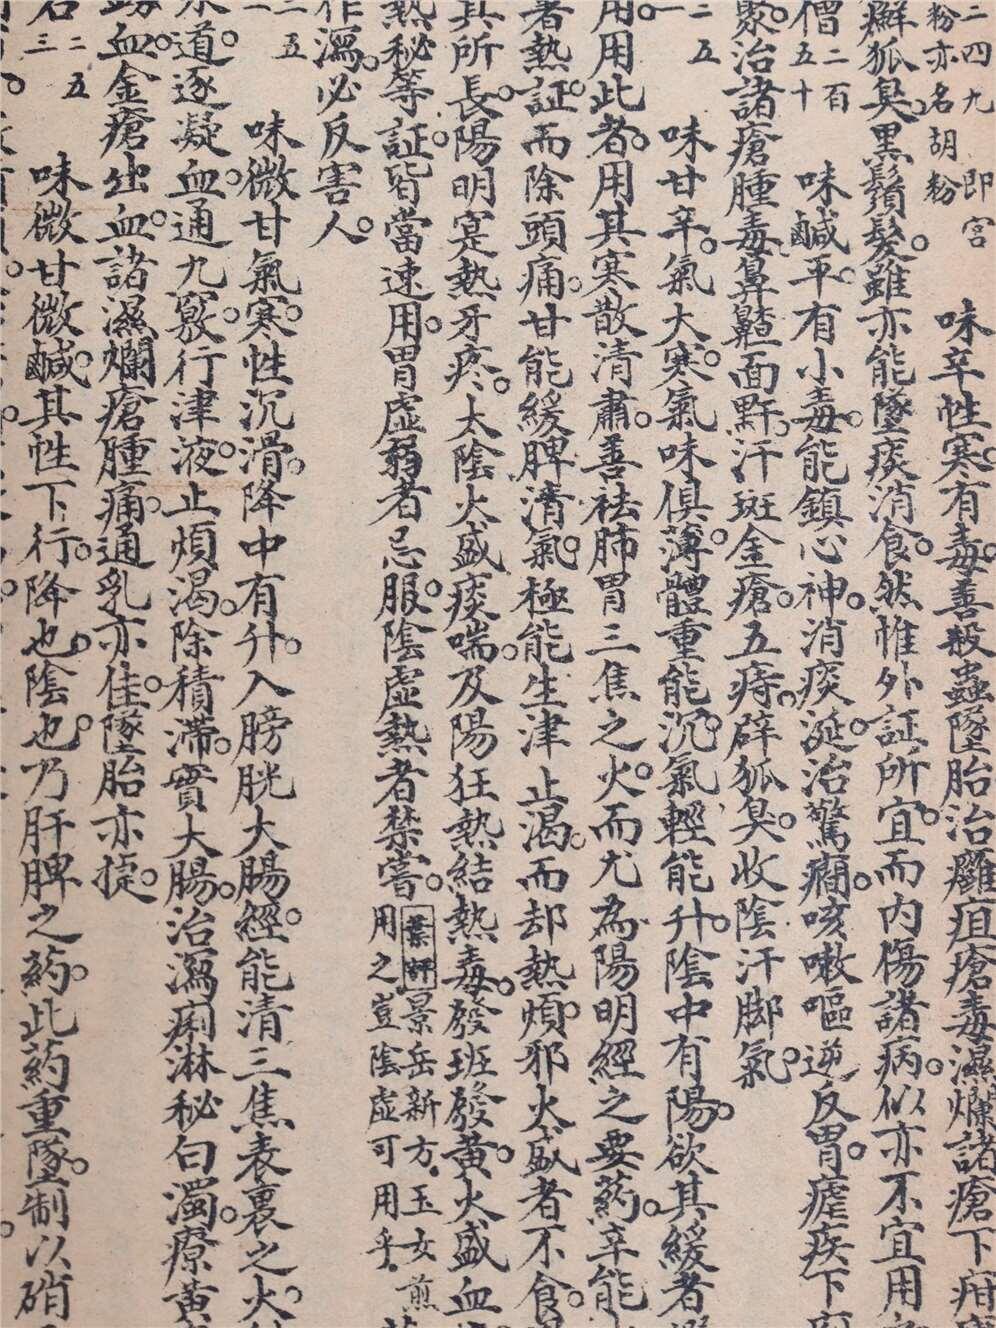 二四九 即宮
粉亦名胡粉
味辛性寒有毒善殺蟲墜胎治癰疽瘡毒濕爛諸瘡下疳
癬狐臭黑鬚髮雖亦能墜痰消食然惟外証所宜而內傷諸病似亦不宜用
僧 二百五十
味鹹平有小毒能鎮心神消痰涎治驚癇咳嗽嘔逆反胃瘧疾下
聚治諸瘡腫毒鼻齄面䵟汗斑金瘡五痔辟狐臭收陰汗脚氣
二五一
味甘辛氣大寒氣味俱薄體重能沉氣輕能升陰中有陽欲其緩者
用用此者用其寒散清肅善祛肺胃三焦之火而尤為陽明經之要藥辛能
者熱証而除頭痛甘能緩脾清氣極能生津止渴而却熱煩邪火盛者不食
其所長陽明寔熱牙疼太陰火盛痰喘及陽狂熱結熱毒發班發黃火盛血
熱秘等証皆當速用胃虛弱者忌服陰虛熱者禁嘗 葉 景岳新方玉女煎
用之豈陰虛可用乎
作瀉必反害人
二五二
味微甘氣寒性沉滑降中有升入膀胱大腸經能清三焦表裏之火
水道逐凝血通九竅行津液止煩渴除積滯實大腸治瀉痢淋秘白濁療黃
血金瘡出血諸濕爛瘡腫痛通乳亦佳墜胎亦㨗
石 二五三
味微甘微鹹其性下行降也陰也乃肝脾之藥此藥重墜制以硝